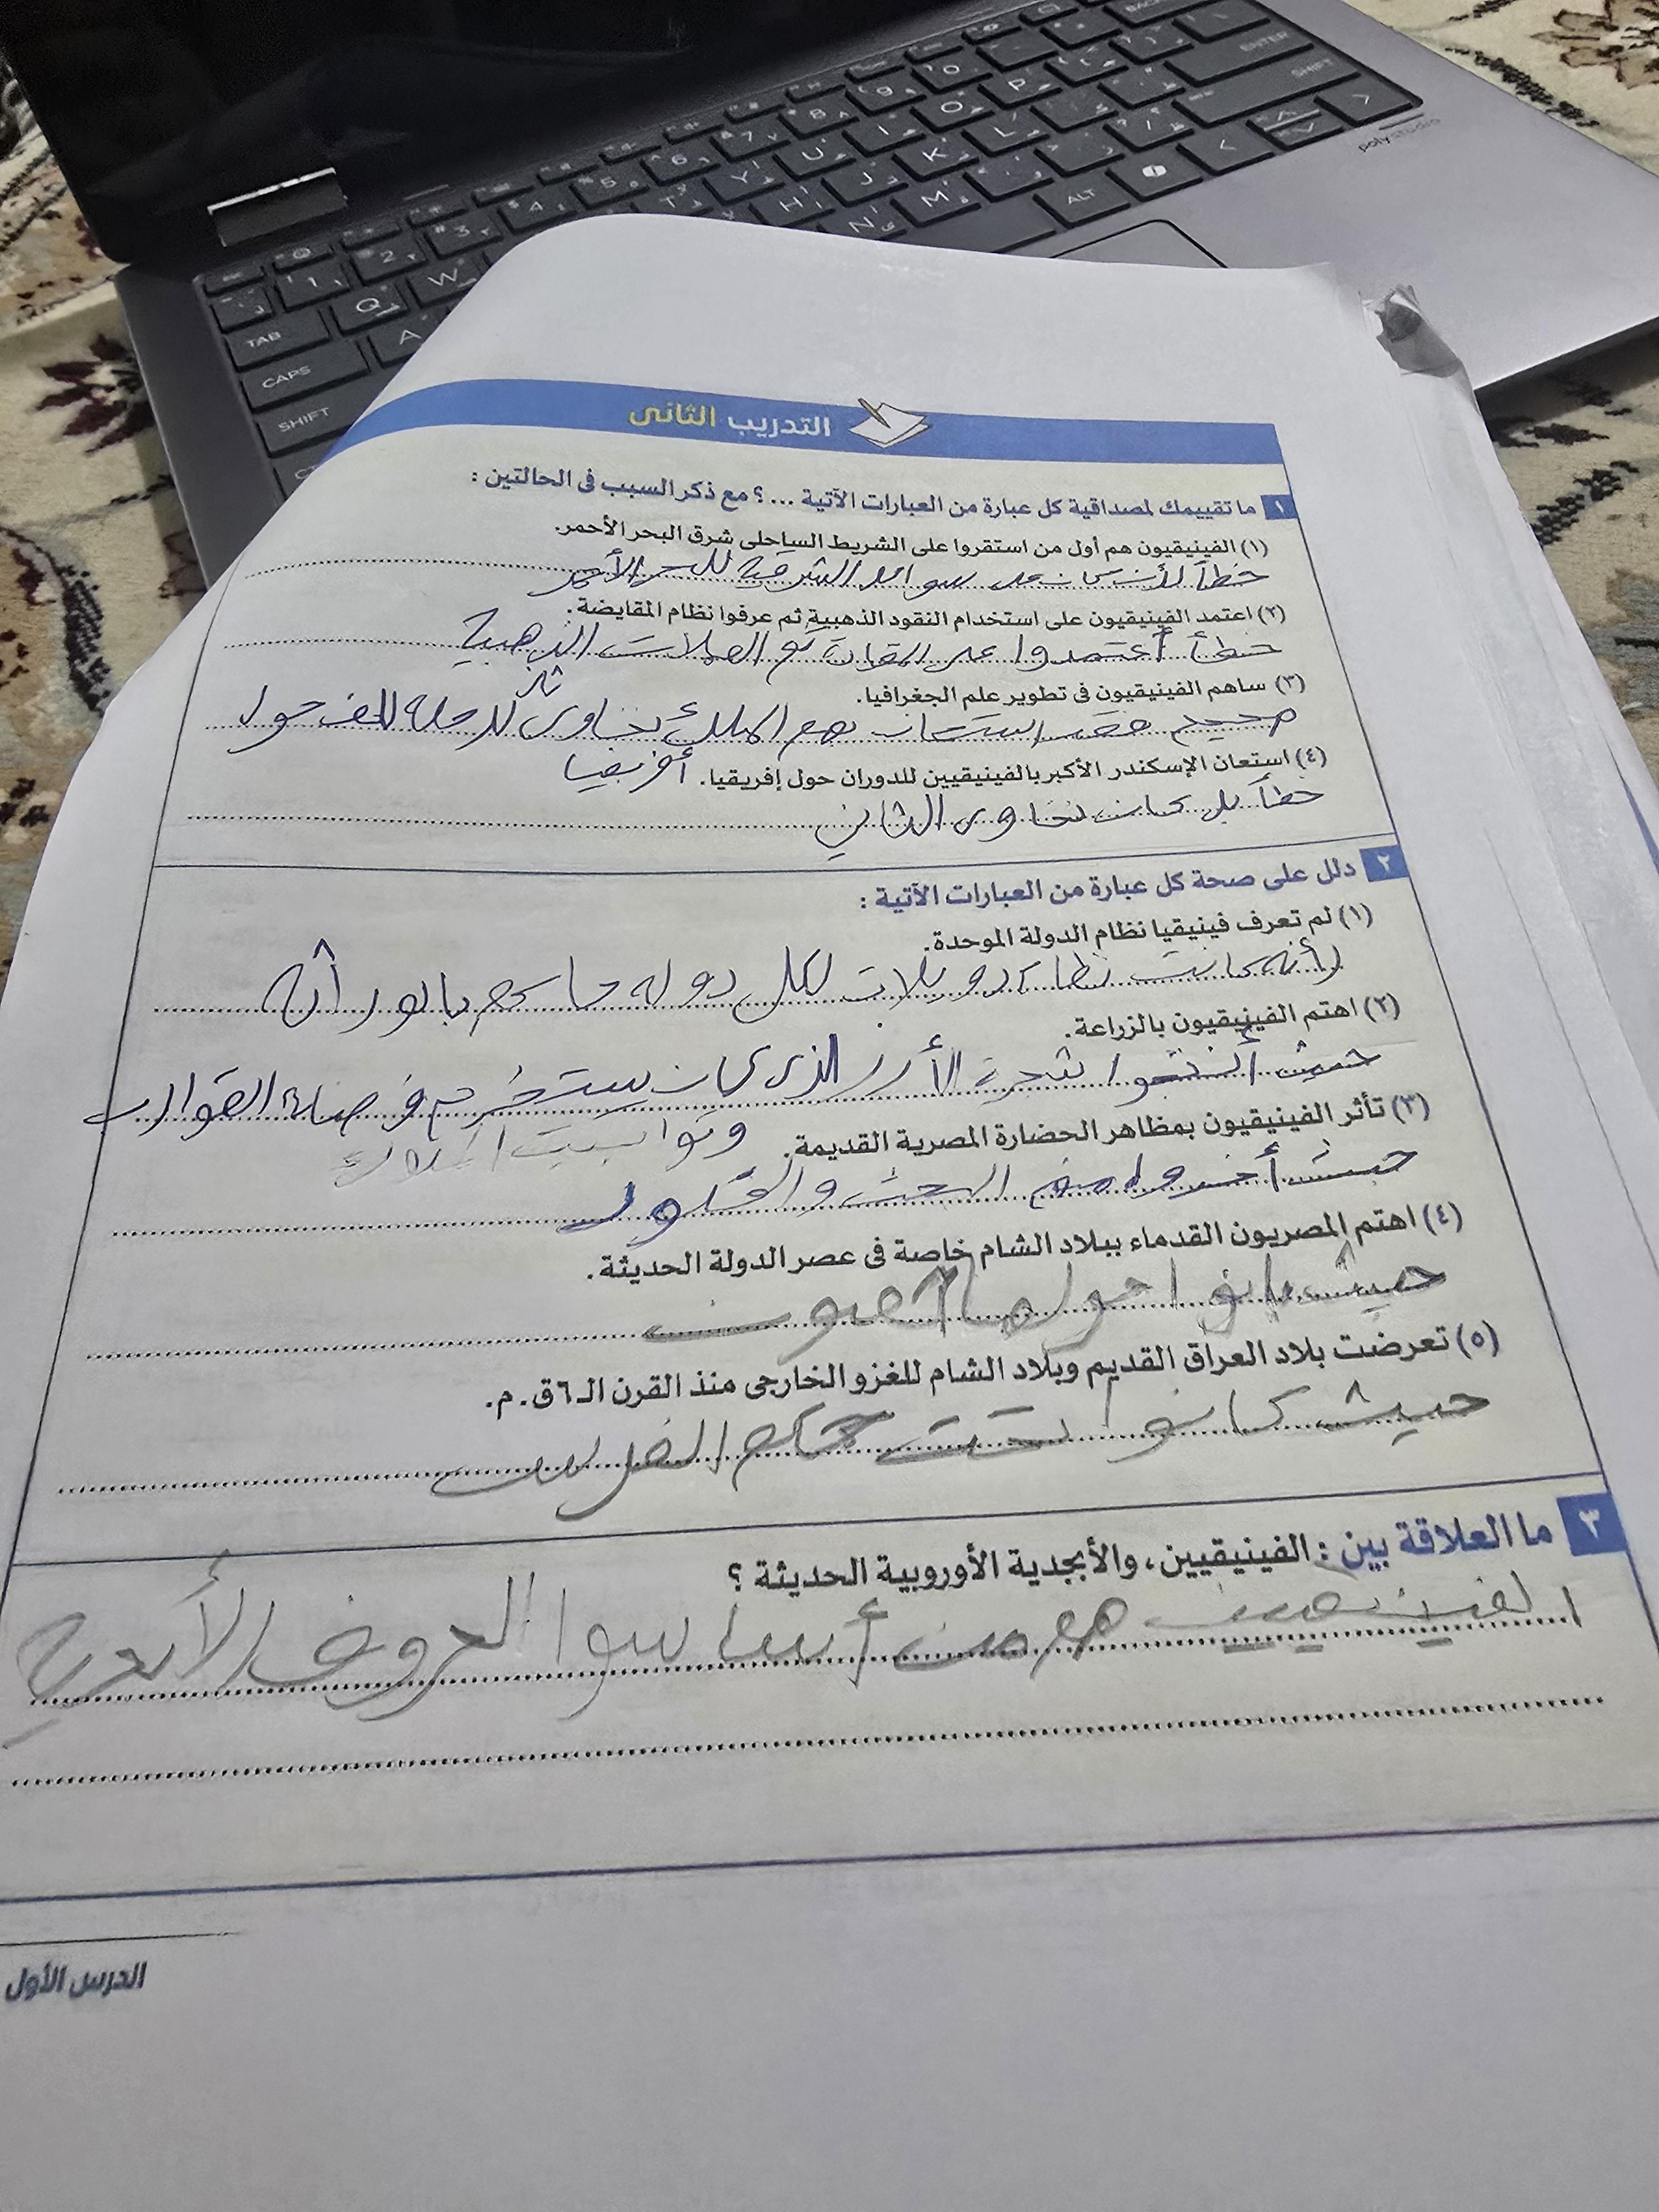 التدريب الثانى
١ ما تقييمك لمصداقية كل عبارة من العبارات الآتية ...؟ مع ذكر السبب فى الحالتين :
(١) الفينيقيون هم أول من استقروا على الشريط الساحلى شرق البحر الأحمر.
خطأ لأن كان على سواحل الشرقية للبحر الأحمر
(٢) اعتمد الفينيقيون على استخدام النقود الذهبية ثم عرفوا نظام المقايضة.
خطأ أعتمدوا على ثم العملات الذهبية
(٣) ساهم الفينيقيون فى تطوير علم الجغرافيا.
صحيح فقد استعان بهم الملك نخاوى لرحلة للف حول
أفريقيا
(٤) استعان الإسكندر الأكبر بالفينيقيين للدوران حول إفريقيا.
خطأ بل كان نخاوى الثاني
٢ دلل على صحة كل عبارة من العبارات الآتية :
(١) لم تعرف فينيقيا نظام الدولة الموحدة.
لأنه كانت نظام دويلات لكل دوله حاكم بالوراثه
(٢) اهتم الفينيقيون بالزراعة.
حيث أنتجوا شجرة الأرز الذى كان يستخدم فى صناعة القوارب
وتوابيت الملوك
(٣) تأثر الفينيقيون بمظاهر الحضارة المصرية القديمة.
حيث أخذوا منهم البعث والخلود
(٤) اهتم المصريون القدماء ببلاد الشام خاصة فى عصر الدولة الحديثة.
حيث بانوا حولها حصون
(٥) تعرضت بلاد العراق القديم وبلاد الشام للغزو الخارجى منذ القرن الـ ٦ ق. م.
حيث كانوا تحت حكم الفرس
٣ ما العلاقة بين : الفينيقيين، والأبجدية الأوروبية الحديثة ؟
الفينيقيين هم من أساسوا الحروف الأبجدية
الدرس الأول